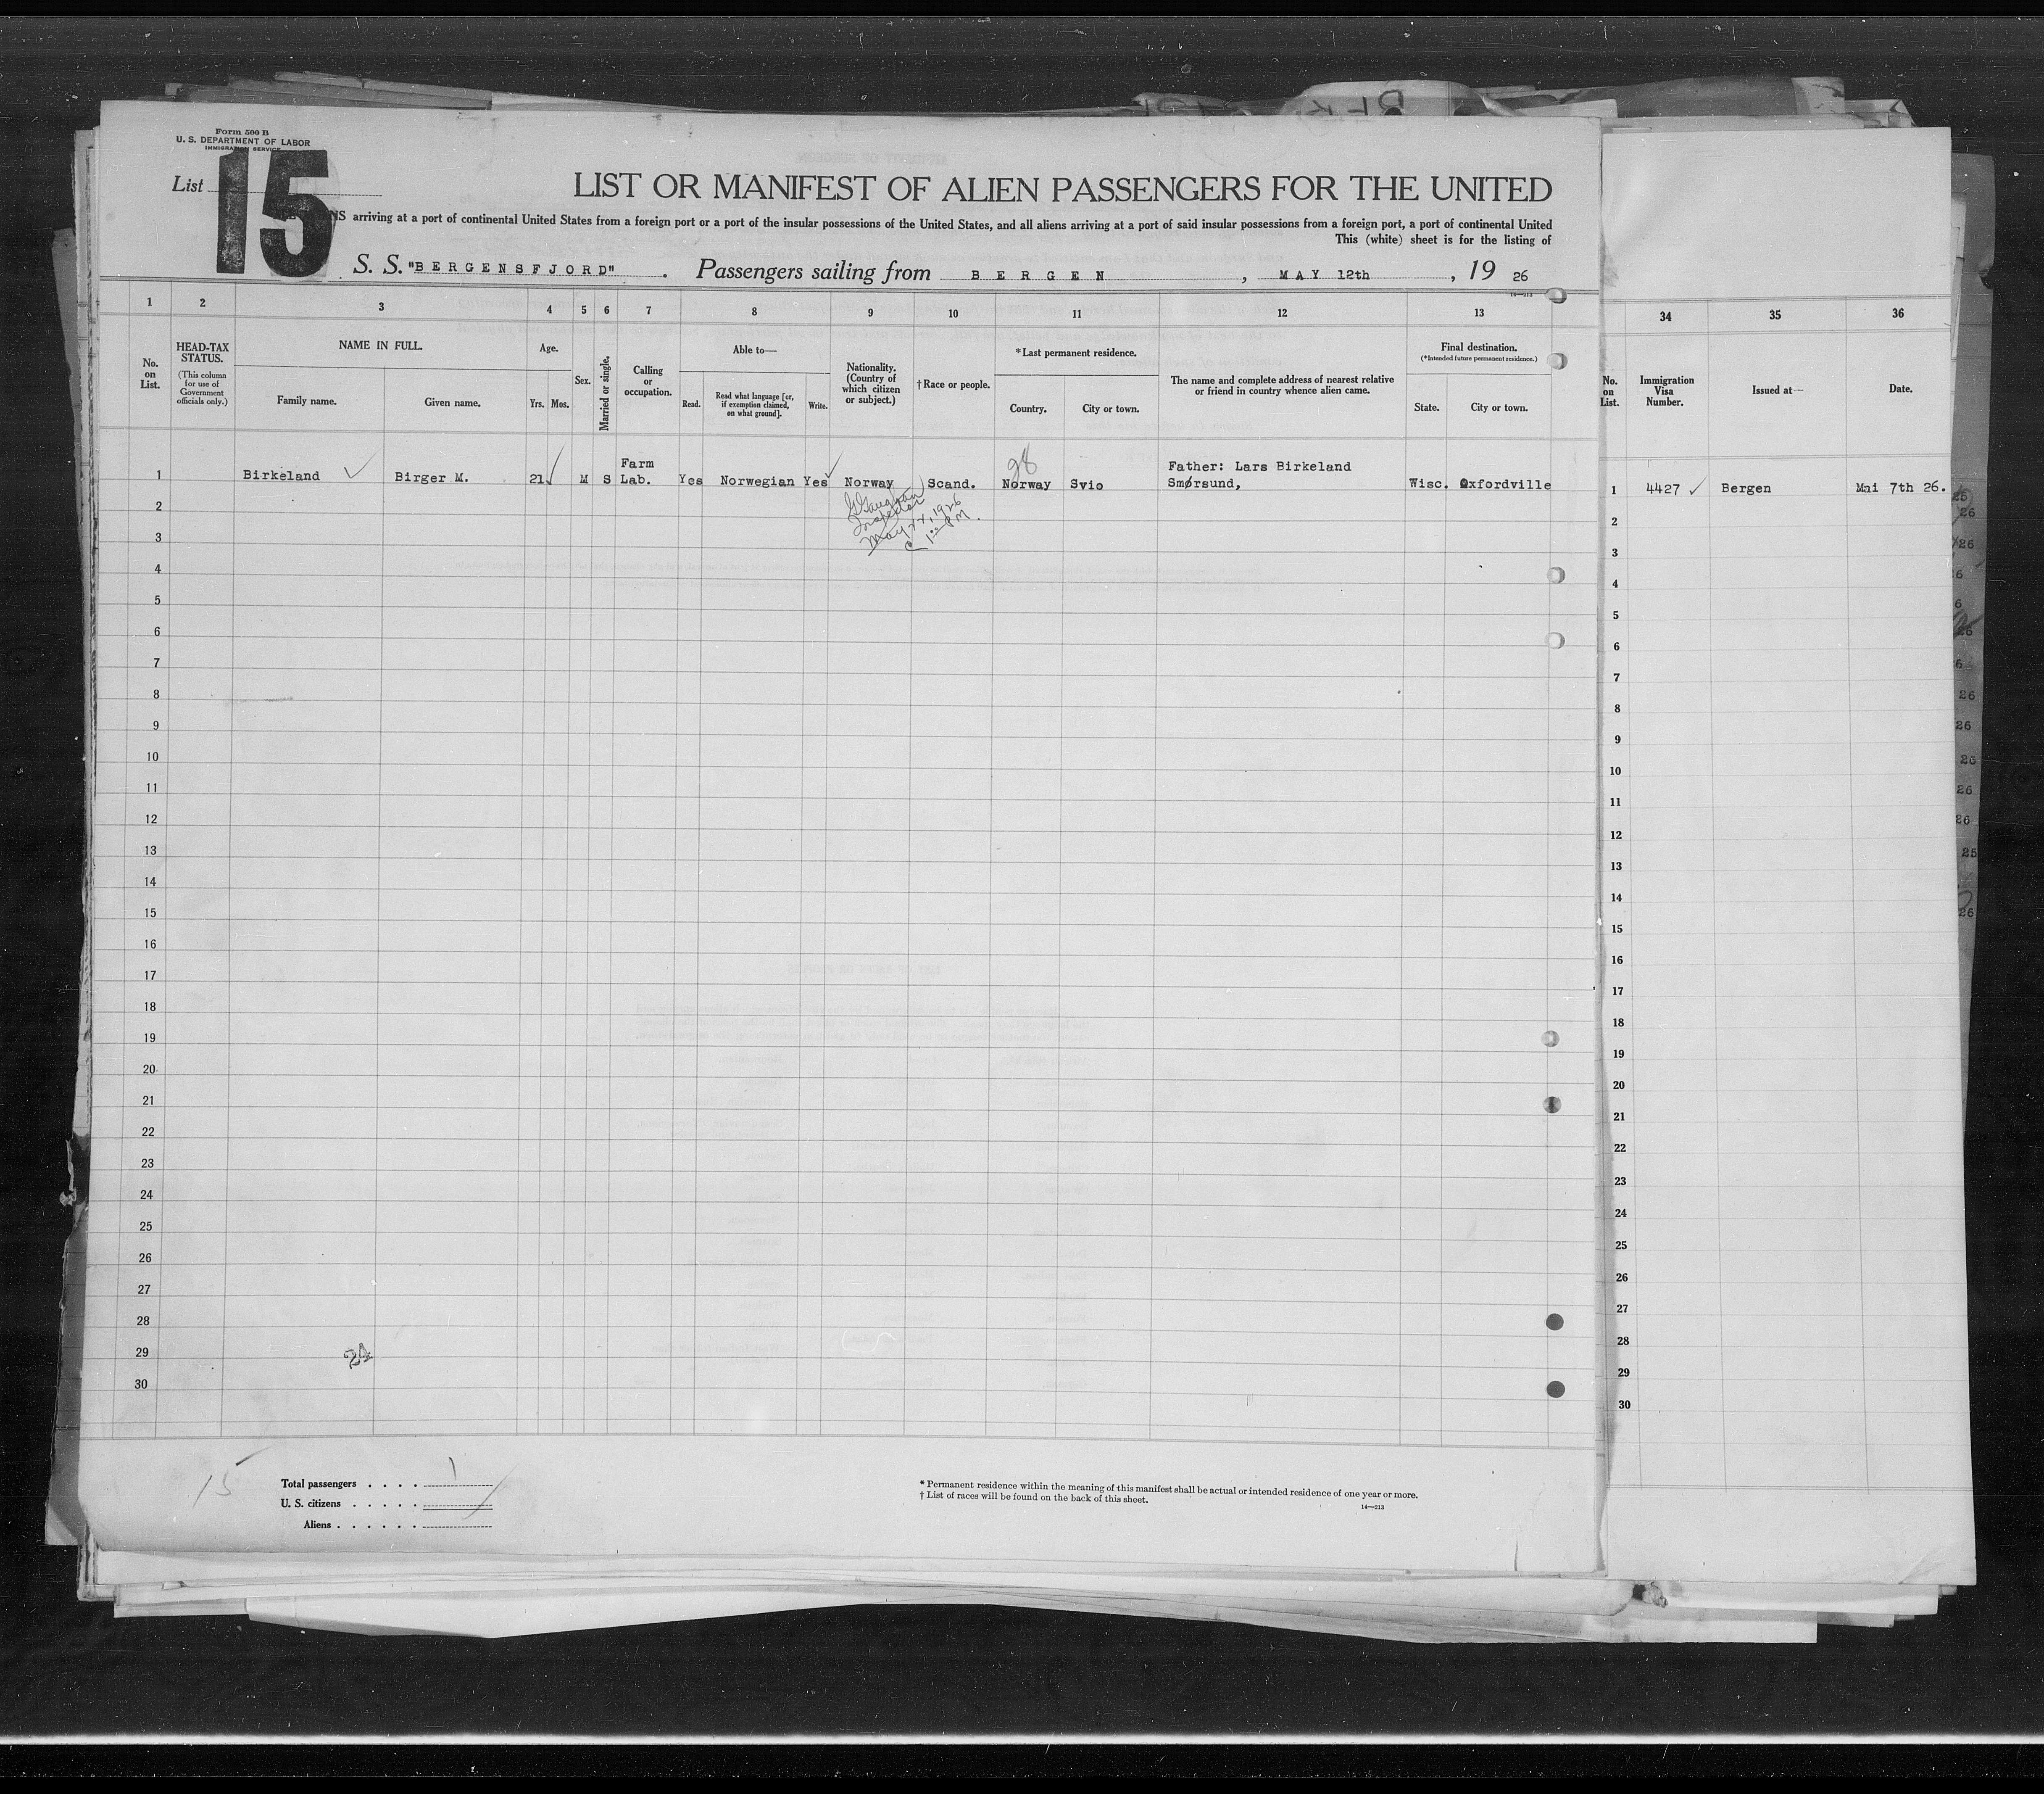 Form 500 B
U. S. DEPARTMENT OF LABOR
IMMIGRATION SERVICE
List 15
LIST OR MANIFEST OF ALIEN PASSENGERS FOR THE UNITED
arriving at a port of continental United States from a foreign port or a port of the insular possessions of the United States, and all aliens arriving at a port of said insular possessions from a foreign port, a port of continental United
This (white) sheet is for the listing of
S. S. "BERGENSFJORD" . Passengers sailing from BERGEN , MAY 12th , 19 26
14—213
1 2 3 4 5 6 7 8 9 10 11 12 13 34 35 36
No. on List.
HEAD-TAX STATUS.
(This column for use of Government officials only.)
NAME IN FULL.
Family name. Given name.
Age.
Yrs. Mos.
Sex.
Married or single.
Calling or occupation.
Able to—
Read. Read what language [or, if exemption claimed, on what ground]. Write.
Nationality. (Country of which citizen or subject.)
† Race or people.
*Last permanent residence.
Country. City or town.
The name and complete address of nearest relative or friend in country whence alien came.
Final destination.
(*Intended future permanent residence.)
State. City or town.
No. on List.
Immigration Visa Number.
Issued at—
Date.
98
Farm
Father: Lars Birkeland
1 Birkeland Birger M. 21 M S Lab. Yes Norwegian Yes Norway Scand. Norway Svio Smørsund, Wisc. Oxfordville 1 4427 Bergen Mai 7th 26.
Inspector
1926
2 2
3 3
4 4
5 5
6 6
7 7
8 8
9 9
10 10
11 11
12 12
13 13
14 14
15 15
16 16
17 17
18 18
19 19
20 20
21 21
22 22
23 23
24 24
25 25
26 26
27 27
28 28
29 24 29
30 30
15
Total passengers . . . . 1
U. S. citizens . . . . .
Aliens . . . . . .
* Permanent residence within the meaning of this manifest shall be actual or intended residence of one year or more.
† List of races will be found on the back of this sheet.
14—213